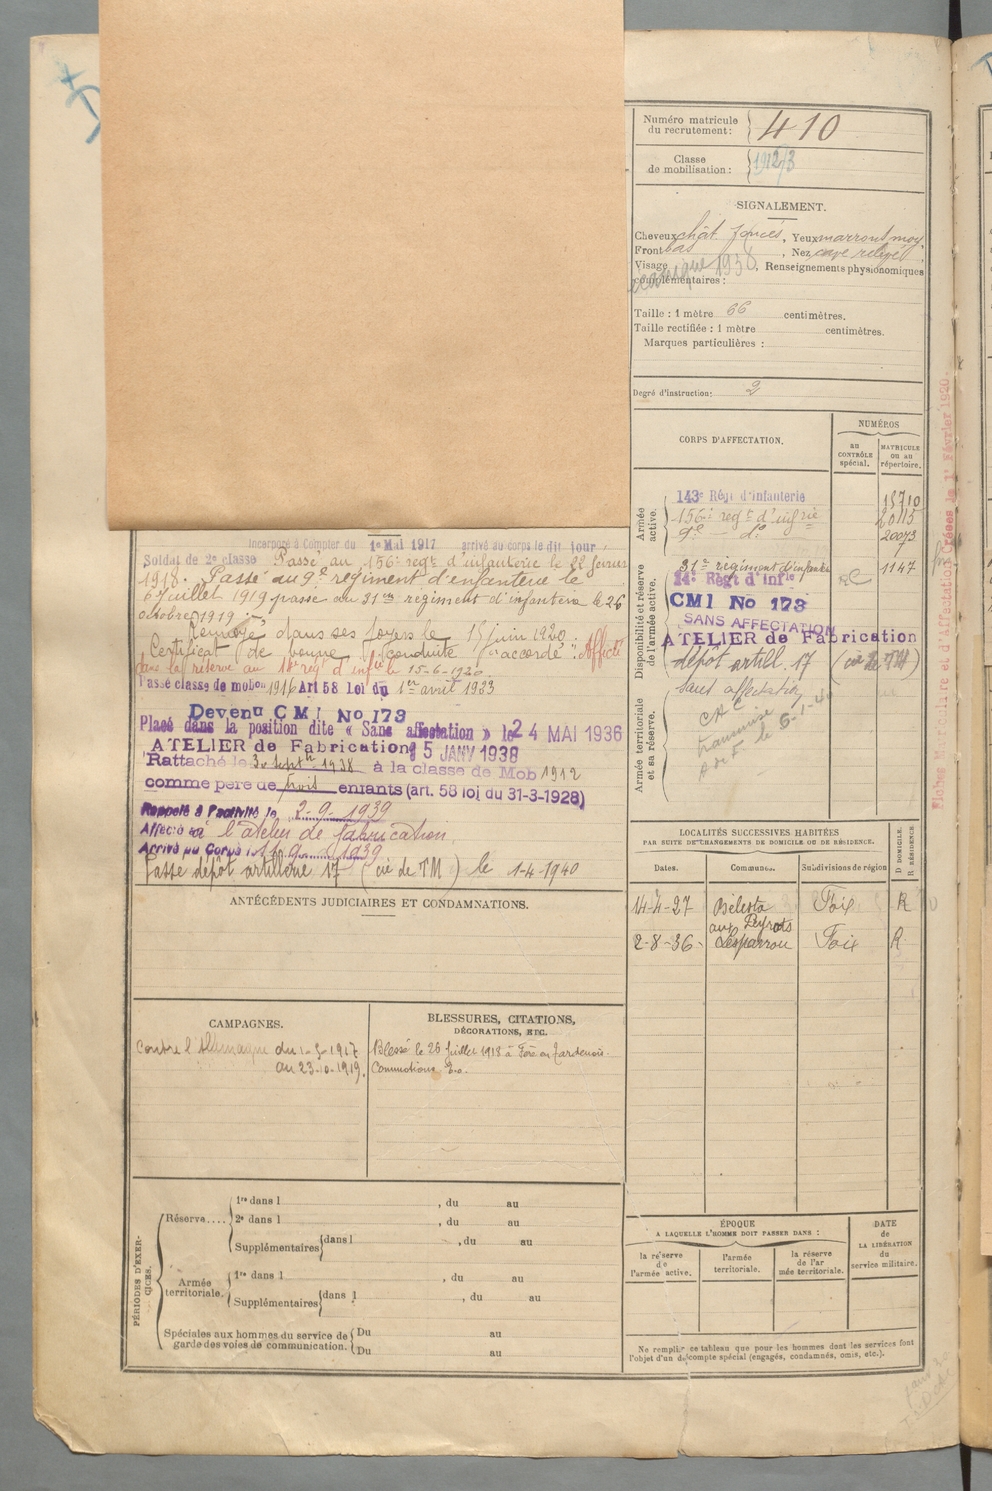 Numéro matricule
du recrutement : 410
Classe
de mobilisation : 1912/3
SIGNALEMENT.
Cheveux chât. foncés, Yeux marrons moy.
Front bas, Nez cave relevé
Visage, Renseignements physionomiques
complémentaires :
1938
Taille : 1 mètre 66 centimètres.
Taille rectifiée : 1 mètre centimètres.
Marques particulières :
Degré d'instruction : 2
CORPS D'AFFECTATION.
NUMÉROS
au CONTRÔLE spécial.
MATRICULE ou au répertoire.
Armée active.
143e Régt d'infanterie 15710
156e regt d'infrie 20115
9e — do — 20073
Disponibilité et réserve de l'armée active.
31e regiment d'infanterie 1147
14e Régt d'Infie
CMI No 173
SANS AFFECTATION
ATELIER de Fabrication
dépôt artill. 17 (cie de TM)
Armée territoriale et sa réserve.
Sans affectation
transmise
le 6-1-4
Incorporé à Compter du 1er Mai 1917 arrivé au corps le dit jour
Soldat de 2e classe Passé au 156e regt d'infanterie le 22 février
1918. Passé au 9e régiment d'infanterie le
6 Juillet 1919 passé au 31eme regiment d'infanterie le 26
octobre 1919.
Renvoyé dans ses foyers le 15 juin 1920.
Certificat de bonne conduite "accordé". Affecté
dans la réserve au regt d'infie le 15-6-1920
Passé classe de mobon 1916 Art 58 loi du 1er avril 1923
Devenu CMI No 173
Placé dans la position dite « Sans affectation » le 24 MAI 1936
ATELIER de Fabrication 5 JANV 1938
Rattaché le 3 Septre 1938 à la classe de Mob 1912
comme père de trois enfants (art. 58 loi du 31-3-1928)
Rappelé à l'activité le 2-9-1939
Affecté à l'atelier de fabrication
Arrivé au Corps le 11-9-1939
Passé dépôt artillerie 17 (cie de TM) le 1-4-1940
ANTÉCÉDENTS JUDICIAIRES ET CONDAMNATIONS.
LOCALITÉS SUCCESSIVES HABITÉES
PAR SUITE DE CHANGEMENTS DE DOMICILE OU DE RÉSIDENCE.
D DOMICILE. R RÉSIDENCE.
Dates. Communes. Subdivisions de région
14-4-27 Bélesta Foix R
aux Peyrots
2-8-36 Lesparrou Foix R
CAMPAGNES.
Contre l'Allemagne du 1-5-1917
au 23-10-1919.
BLESSURES, CITATIONS,
DÉCORATIONS, ETC.
Blessé le 26 Juillet 1918 à Fère en Tardenois.
Commotions
PÉRIODES D'EXERCICES.
Réserve....
1re dans l , du au
2e dans l , du au
Supplémentaires dans l , du au
Armée territoriale.
1re dans l , du au
Supplémentaires dans l , du au
Spéciales aux hommes du service de garde des voies de communication.
Du au
Du au
ÉPOQUE
A LAQUELLE L'HOMME DOIT PASSER DANS :
la réserve de l'armée active.
l'armée territoriale.
la réserve de l'armée territoriale.
DATE de LA LIBÉRATION du service militaire.
Ne remplir ce tableau que pour les hommes dont les services font
l'objet d'un décompte spécial (engagés, condamnés, omis, etc.).